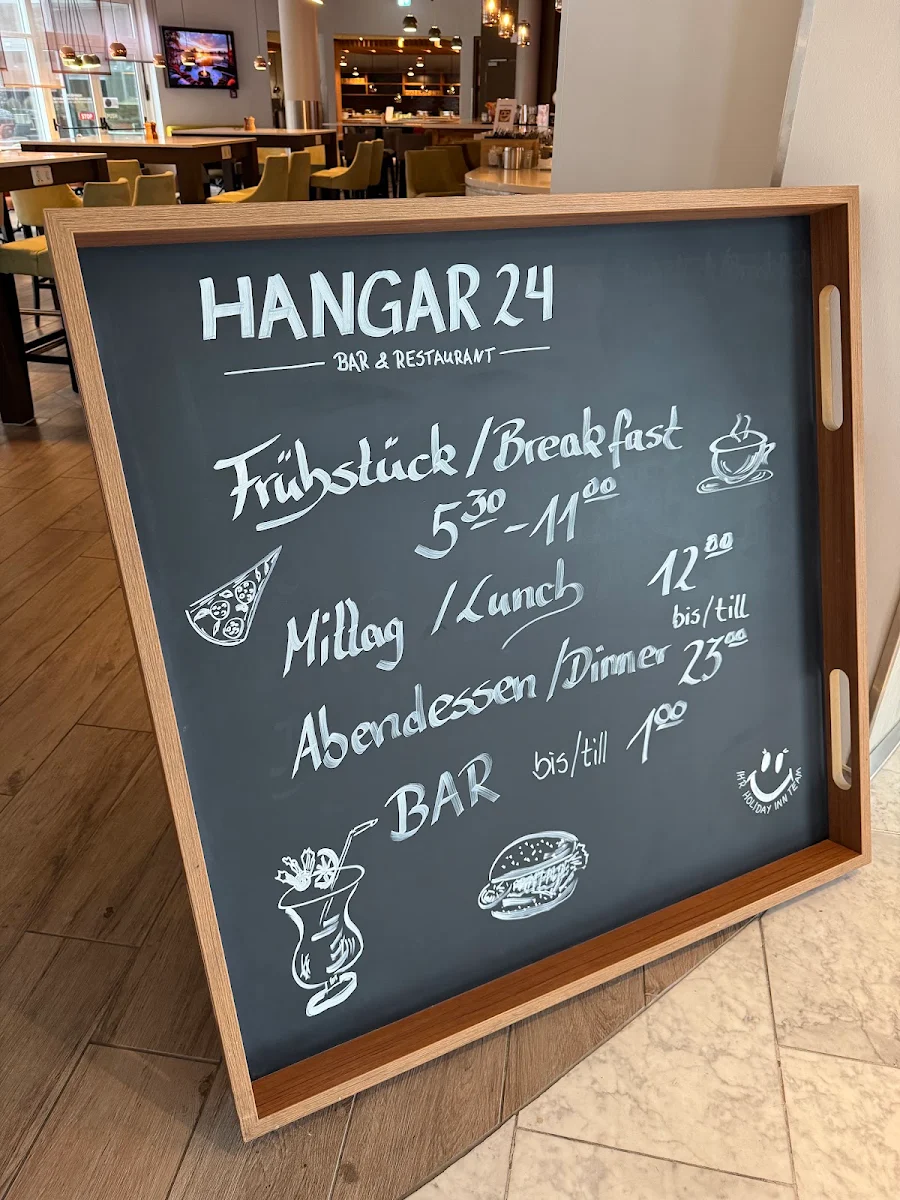 HANGAR 24
BAR & RESTAURANT
Frühstück / Breakfast
5³⁰ - 11⁰⁰
Mittag / Lunch 12⁰⁰
bis/till
Abendessen / Dinner 23⁰⁰
BAR bis/till 1⁰⁰
IHR HOLIDAY INN TEAM
STOP